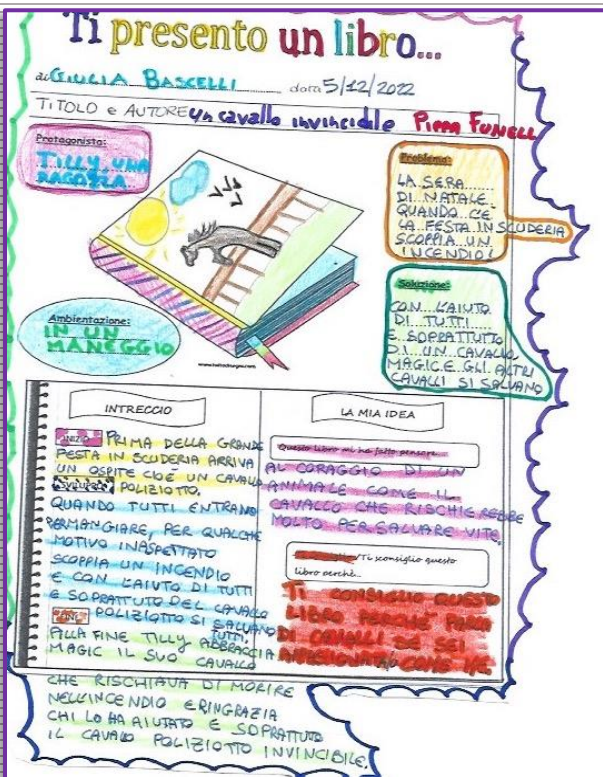 Ti presento un libro...
di GIULIA BASCELLI data 5/12/2022
TITOLO e AUTORE Un cavallo invincibile Pippa Funnell
Protagonista:
TILLY UNA
RAGAZZA
Problema:
LA SERA
DI NATALE
QUANDO C'E
LA FESTA IN SCUDERIA
SCOPPIA UN
INCENDIO!
Soluzione:
CON L'AIUTO
DI TUTTI
E SOPRATTUTTO
DI UN CAVALLO
MAGIC E GLI ALTRI
CAVALLI SI SALVANO
Ambientazione:
IN UN
MANEGGIO
INTRECCIO
INIZIO PRIMA DELLA GRANDE
FESTA IN SCUDERIA ARRIVA
UN OSPITE CIOÈ UN CAVALLO
SVILUPPO POLIZIOTTO.
QUANDO TUTTI ENTRANO
PER MANGIARE, PER QUALCHE
MOTIVO INASPETTATO
SCOPPIA UN INCENDIO
E CON L'AIUTO DI TUTTI
E SOPRATTUTO DEL CAVALLO
POLIZIOTTO SI SALVANO
TUTTI.
ALLA FINE TILLY ABBRACCIA
MAGIC IL SUO CAVALLO
CHE RISCHIAVA DI MORIRE
NELL'INCENDIO E RINGRAZIA
CHI LO HA AIUTATO E SOPRATTUTO
IL CAVALLO POLIZIOTTO INVINCIBILE.
LA MIA IDEA
Questo libro mi ha fatto pensare...
AL CORAGGIO DI UN
ANIMALE COME IL
CAVALLO CHE RISCHIEREBBE
MOLTO PER SALVARE VITE.
/Ti sconsiglio questo
libro perchè...
TI CONSIGLIO QUESTO
LIBRO PERCHÉ PARLA
DI CAVALLI SE SEI
APPASSIONATA COME ME.